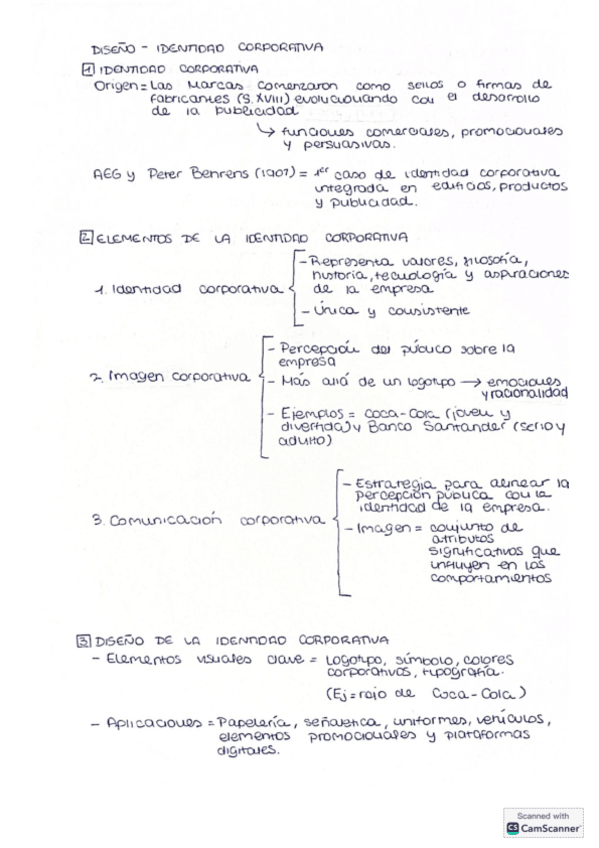 DISEÑO - IDENTIDAD CORPORATIVA
1 IDENTIDAD CORPORATIVA
Origen = Las Marcas comenzaron como sellos o firmas de
fabricantes (S. XVIII) evolucionando con el desarrollo
de la publicidad
↳ funciones comerciales, promocionales
y persuasivas.
AEG y Peter Behrens (1907) = 1er caso de identidad corporativa
integrada en edificios, productos
y publicidad.
2 ELEMENTOS DE LA IDENTIDAD CORPORATIVA
1. Identidad corporativa
- Representa valores, filosofía,
historia, tecnología y aspiraciones
de la empresa
- Única y consistente
2. Imagen corporativa
- Percepción del público sobre la
empresa
- Más allá de un logotipo → emociones
y racionalidad
- Ejemplos = Coca-Cola (joven y
divertida) y Banco Santander (serio y
adulto)
3. Comunicación corporativa
- Estrategia para alinear la
percepción pública con la
identidad de la empresa.
- Imagen = conjunto de
atributos
significativos que
influyen en los
comportamientos
3 DISEÑO DE LA IDENTIDAD CORPORATIVA
- Elementos visuales clave = Logotipo, símbolo, colores
corporativos, tipografía.
(Ej = rojo de Coca-Cola)
- Aplicaciones = Papelería, señalética, uniformes, vehículos,
elementos promocionales y plataformas
digitales.
Scanned with
CS CamScanner